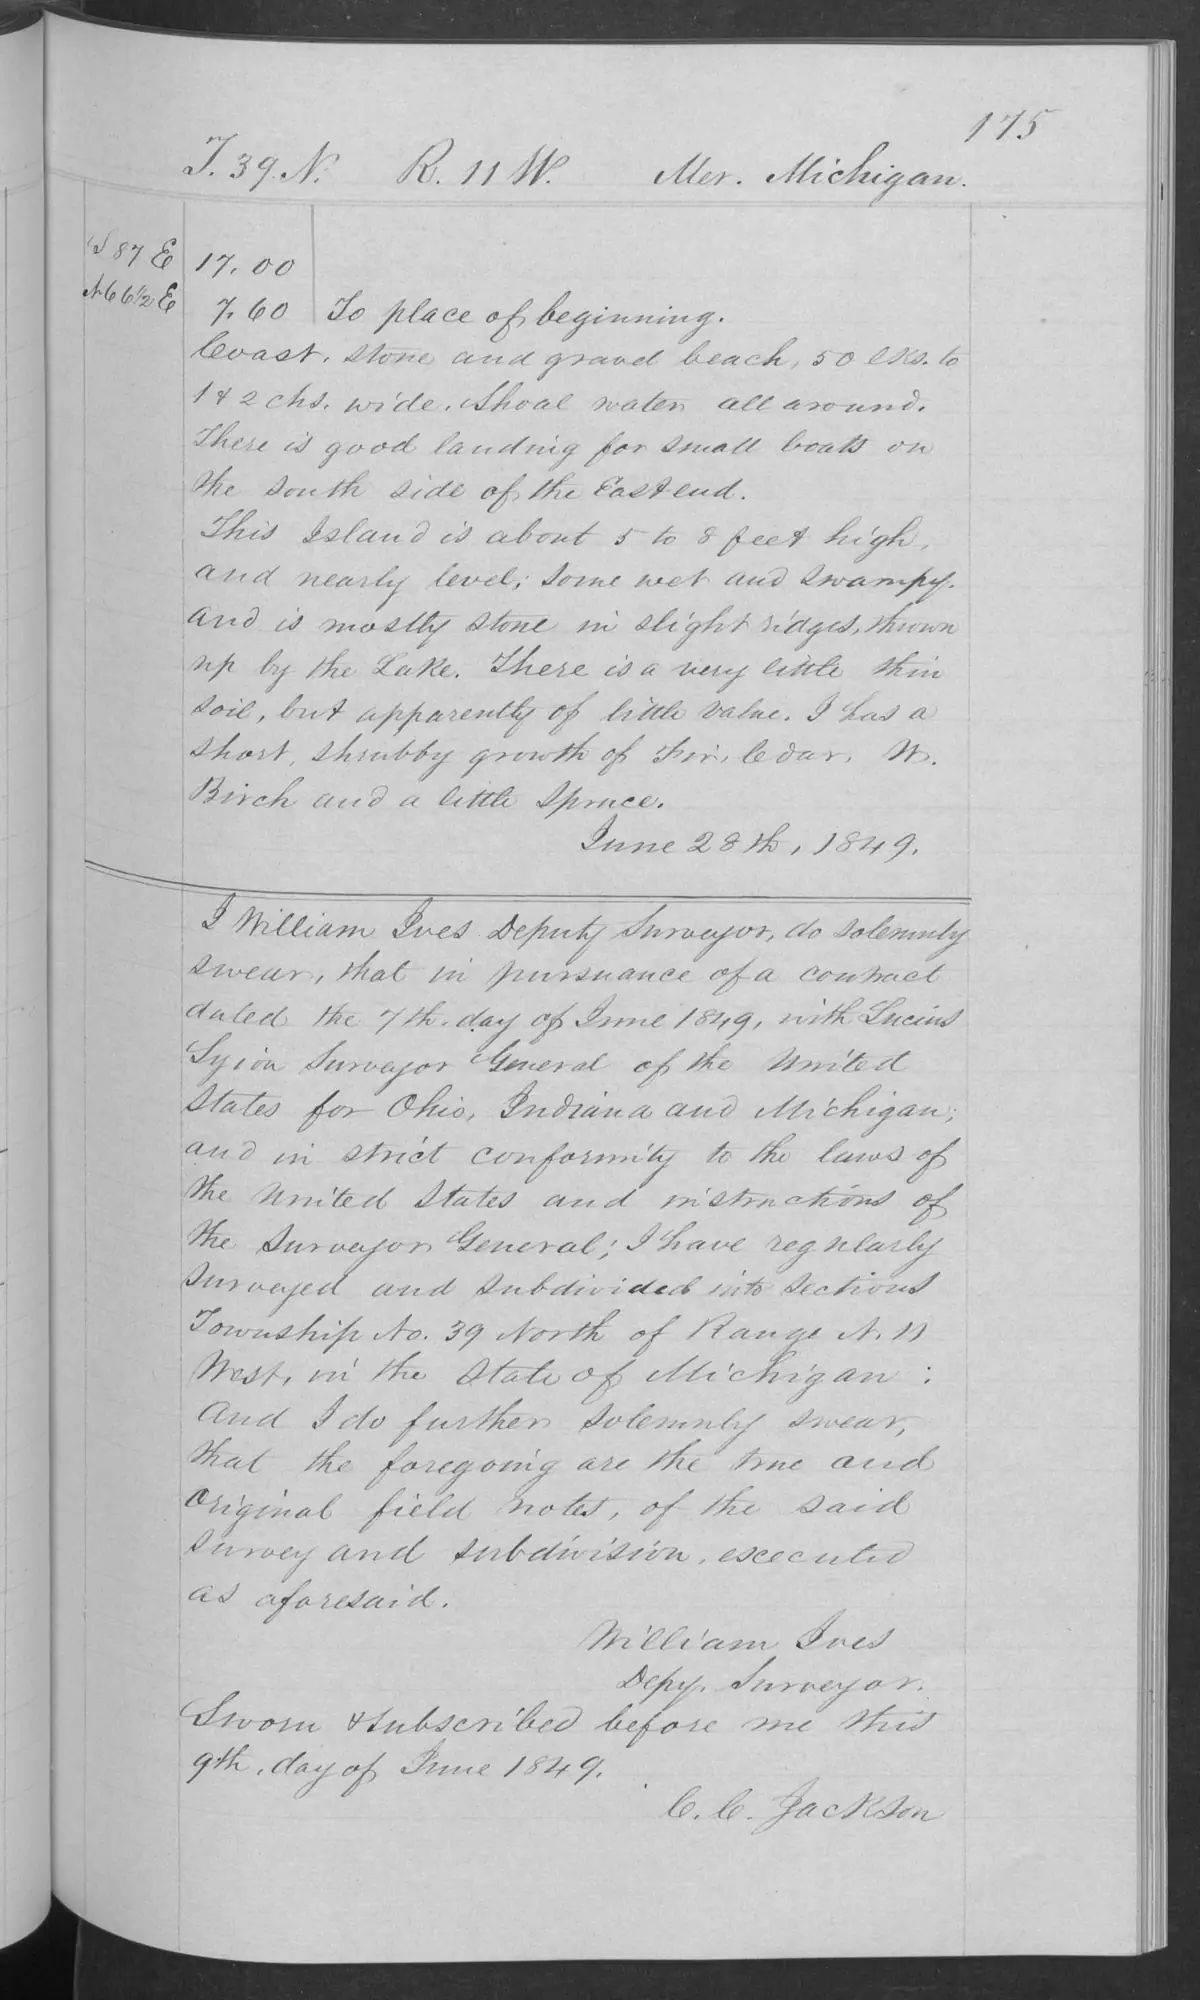 175
T. 39. N. R. 11 W. Mer. Michigan.
S 87 E 17.00
N 66 1/2 E 7.60 To place of beginning.
Coast, stone and gravel beach, 50 lks. to
1 & 2 chs. wide. Shoal water all around.
There is good landing for small boats on
the south side of the East end.
This Island is about 5 to 8 feet high,
and nearly level; some wet and swampy.
and is mostly stone in slight ridges, thrown
up by the Lake. There is a very little thin
soil, but apparently of little value. I has a
short, shrubby growth of Fir, Cedar, W.
Birch and a little Spruce.
June 28th, 1849.
I William Ives Deputy Surveyor, do solemnly
swear, that in pursuance of a contract
dated the 7th. day of June 1849, with Lucius
Lyion Surveyor General of the United
States for Ohio, Indiana and Michigan;
and in strict conformity to the laws of
the United States and instructions of
the Surveyor General; I have regularly
surveyed and subdivided into sections
Township No. 39 North of Range N. 11
West, in the State of Michigan:
And I do further solemnly swear,
that the foregoing are the true and
original field notes, of the said
survey and subdivision, executed
as aforesaid.
William Ives
Depy. Surveyor.
Sworn & subscribed before me this
9th. day of June 1849.
C. C. Jackson